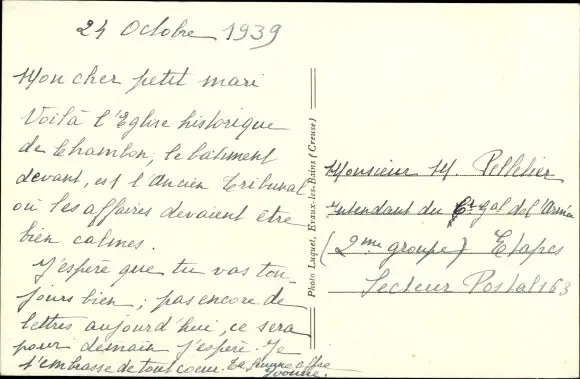 24 Octobre 1939
Mon cher petit mari
Voilà l'Eglise historique
de Chambon, le bâtiment
devant, est l'Ancien Tribunal
où les affaires devaient être
bien calmes.
J'espère que tu vas tou-
jours bien; pas encore de
lettres aujourd'hui, ce sera
pour demain j'espère. Je
t'embrasse de tout coeur. Ta femme
Yvonne.
Photo Luquet, Evaux-les-Bains (Creuse)
Monsieur M. Pelletier
Intendant du Gal de l'Armée
(2me groupe) Etapes
Secteur Postal 163